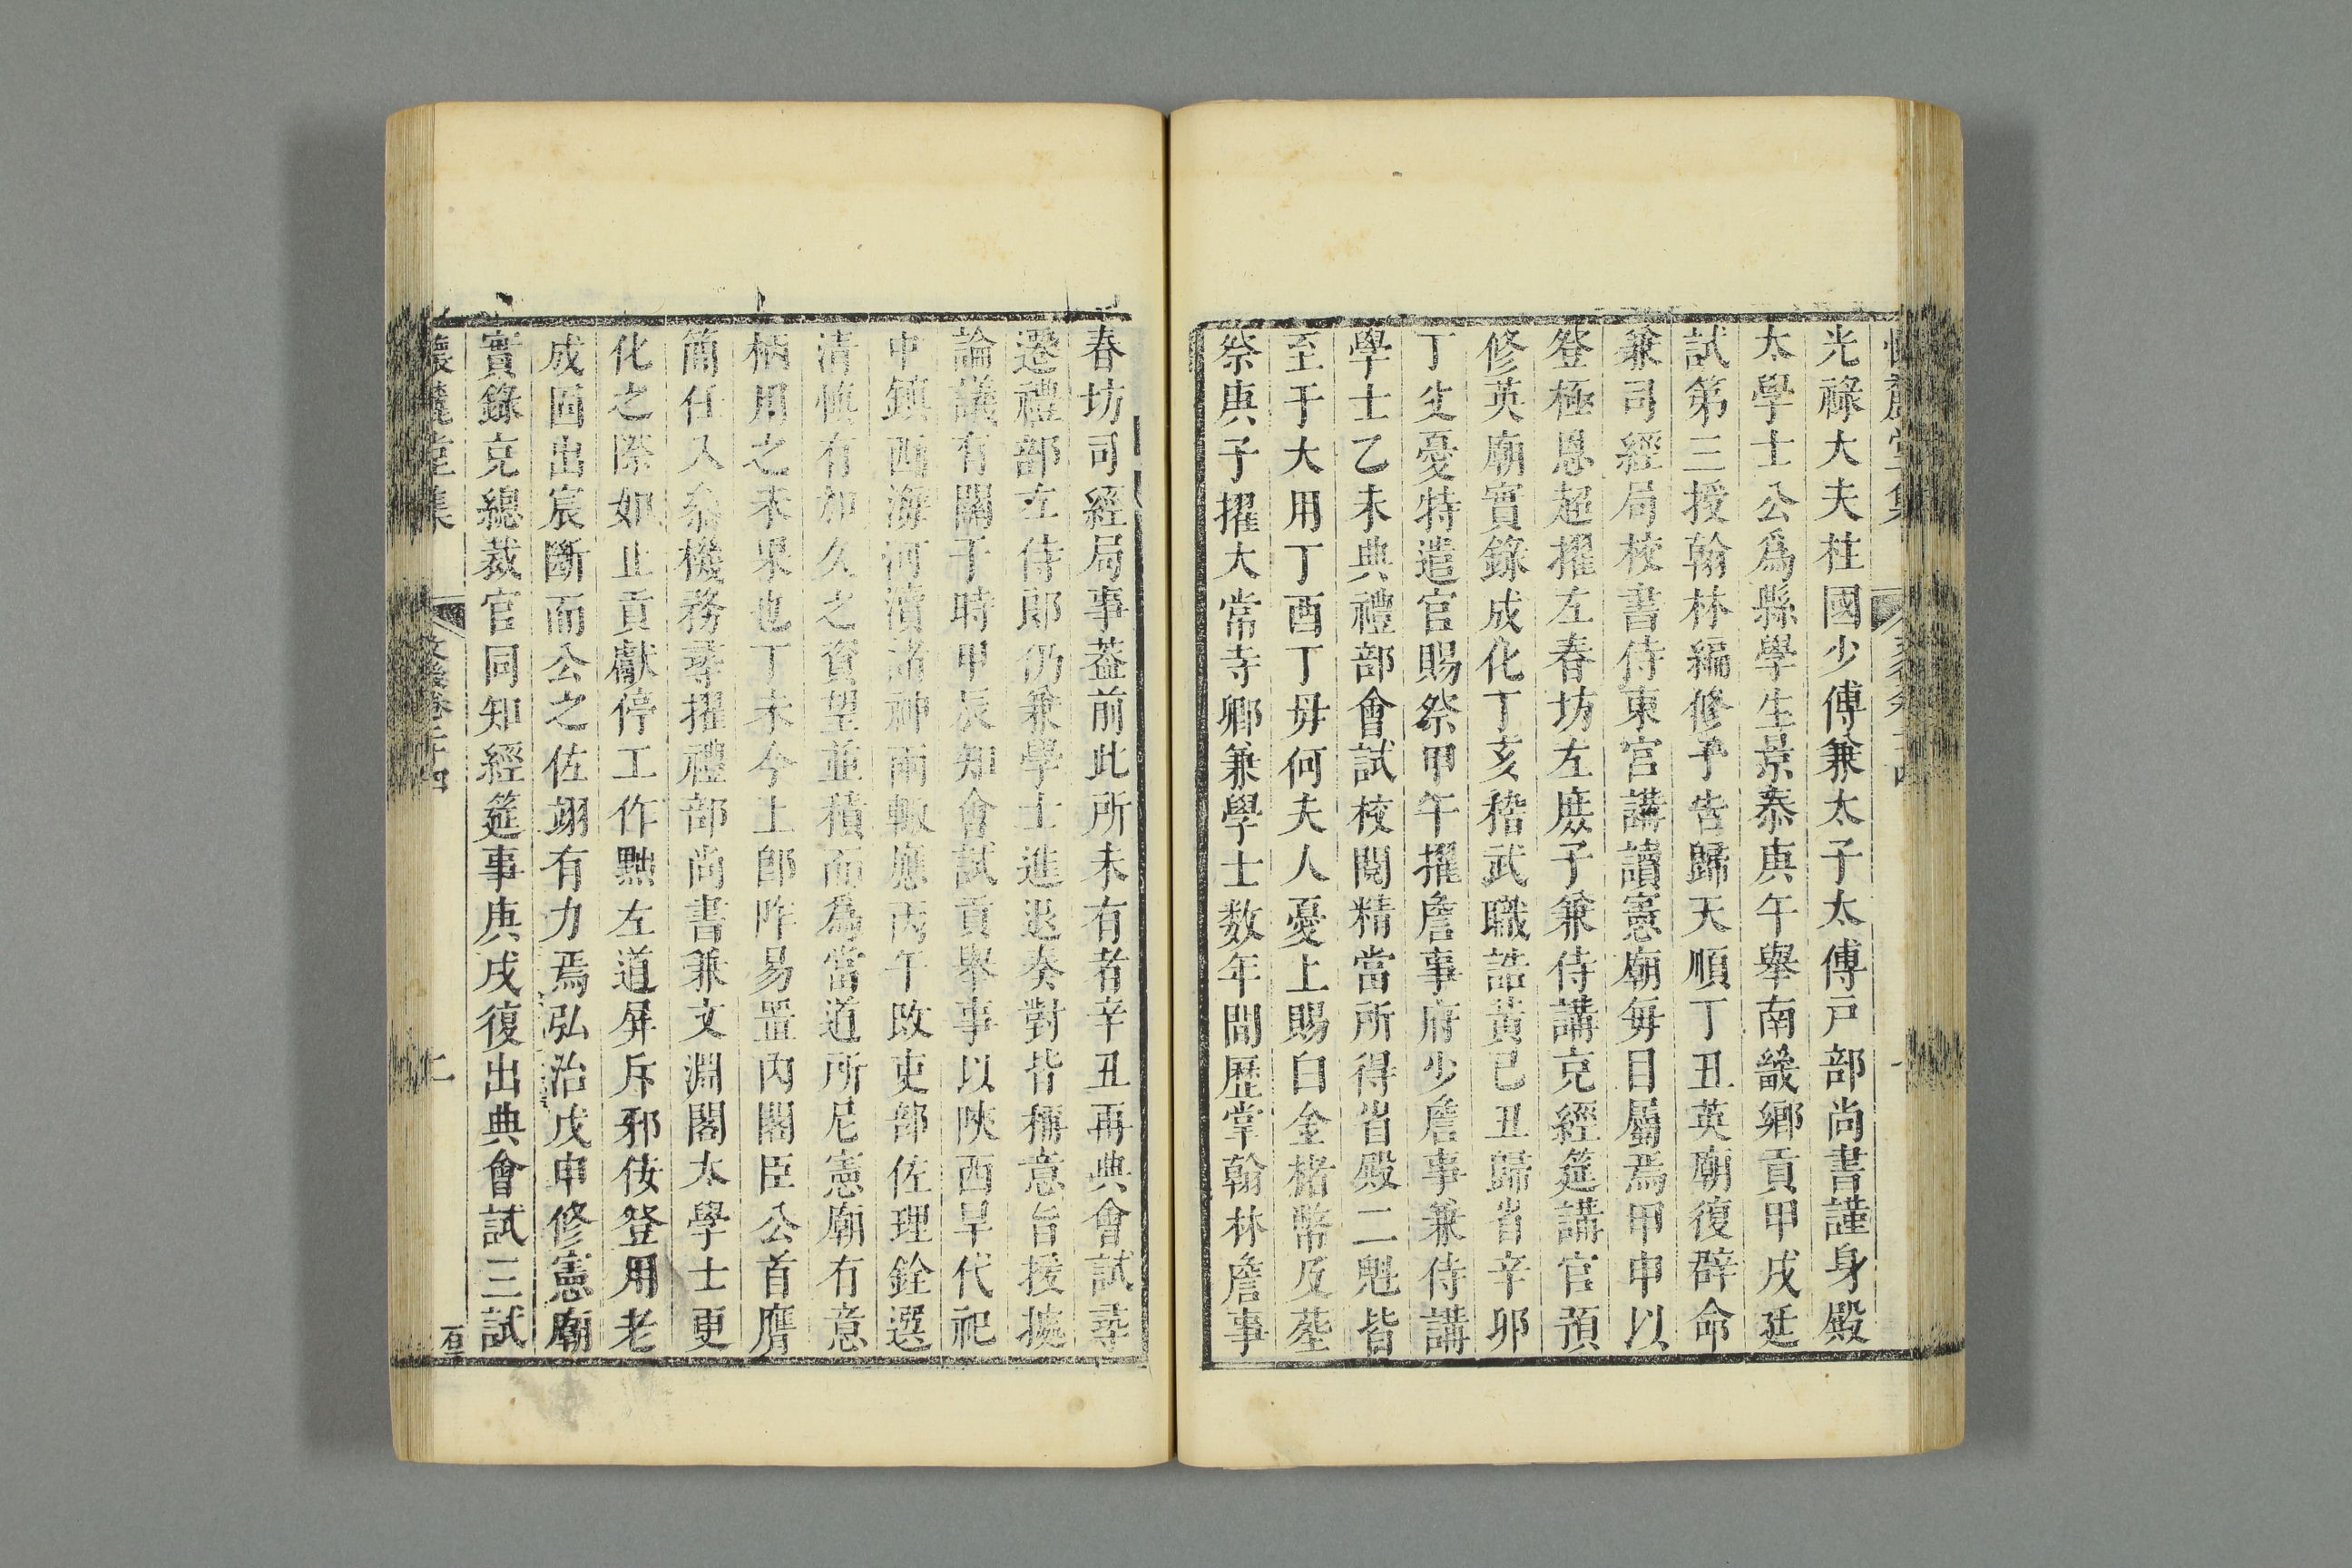 光祿大夫柱國少傅兼太子太傅戸部尚書謹身殿
太學士公爲縣學生景泰庚午舉南畿鄉貢甲戌廷
試第三授翰林編修予告歸天順丁丑英廟復辟命
兼司經局校書侍東宮講讀憲廟毎日屬焉甲申以
登極恩超擢左春坊左庶子兼侍講克經筵講官預
修英廟實錄成化丁亥稽武職誥黃已丑歸省辛卯
丁父憂特遣官賜祭甲午擢詹事府少詹事兼侍講
學士乙未典禮部會試校閱精當所得省殿二魁皆
至于大用丁酉丁毋何夫人憂上賜白金楮幣及塟
祭庚子擢大常寺卿兼學士数年間歷掌翰林詹事
春坊司經局事葢前此所未有者辛丑再典會試尋
遷禮部左侍郎仍兼學士進退奏對皆稱意旨援據
論議有關于時甲辰知會試貢舉事以陜西旱代祀
中鎮西海河瀆諸神雨輙應丙午改吏部佐理銓選
清慎有加久之資望並積而爲當道所尼憲廟有意
柄用之未果也丁未今上卽阼易置內閣臣公首膺
簡任入叅機務尋擢禮部尚書兼文淵閣太學士更
化之際如止貢獻停工作黜左道屏斥邪佞登用老
成固出宸斷而公之佐翊有力焉弘治戊申修憲廟
實錄克總裁官同知經筵事庚戌復出典會試三試
懷麓堂集
文後卷二十四
二